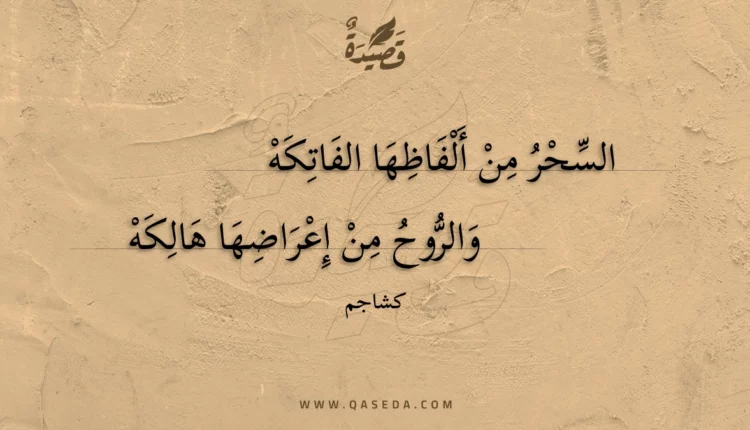 قَصِيْدَةٌ
السِّحْرُ مِنْ أَلْفَاظِهَا الفَاتِكَهْ
وَالرُّوحُ مِنْ إِعْرَاضِهَا هَالِكَهْ
كشاجم
WWW.QASEDA.COM